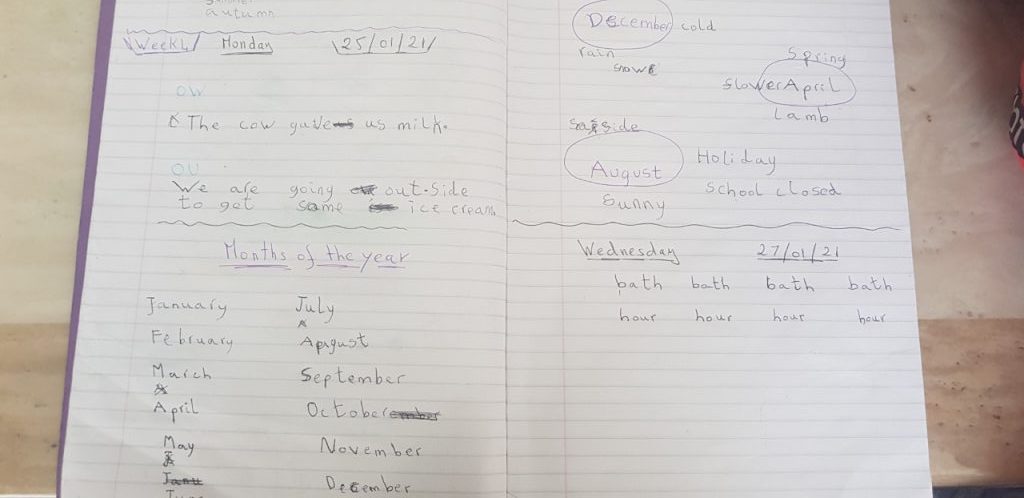 autumn
Week 4 Monday 25/01/21
ow
The cow gave us milk.
ou
We are going out-side
to get some ice cream
Months of the year
January July
February Apugust
March September
April October
May November
December
June
December cold
rain
snow
Spring
flower April
lamb
seaside
August Holiday
school closed
Sunny
Wednesday 27/01/21
bath bath bath bath
hour hour hour hour